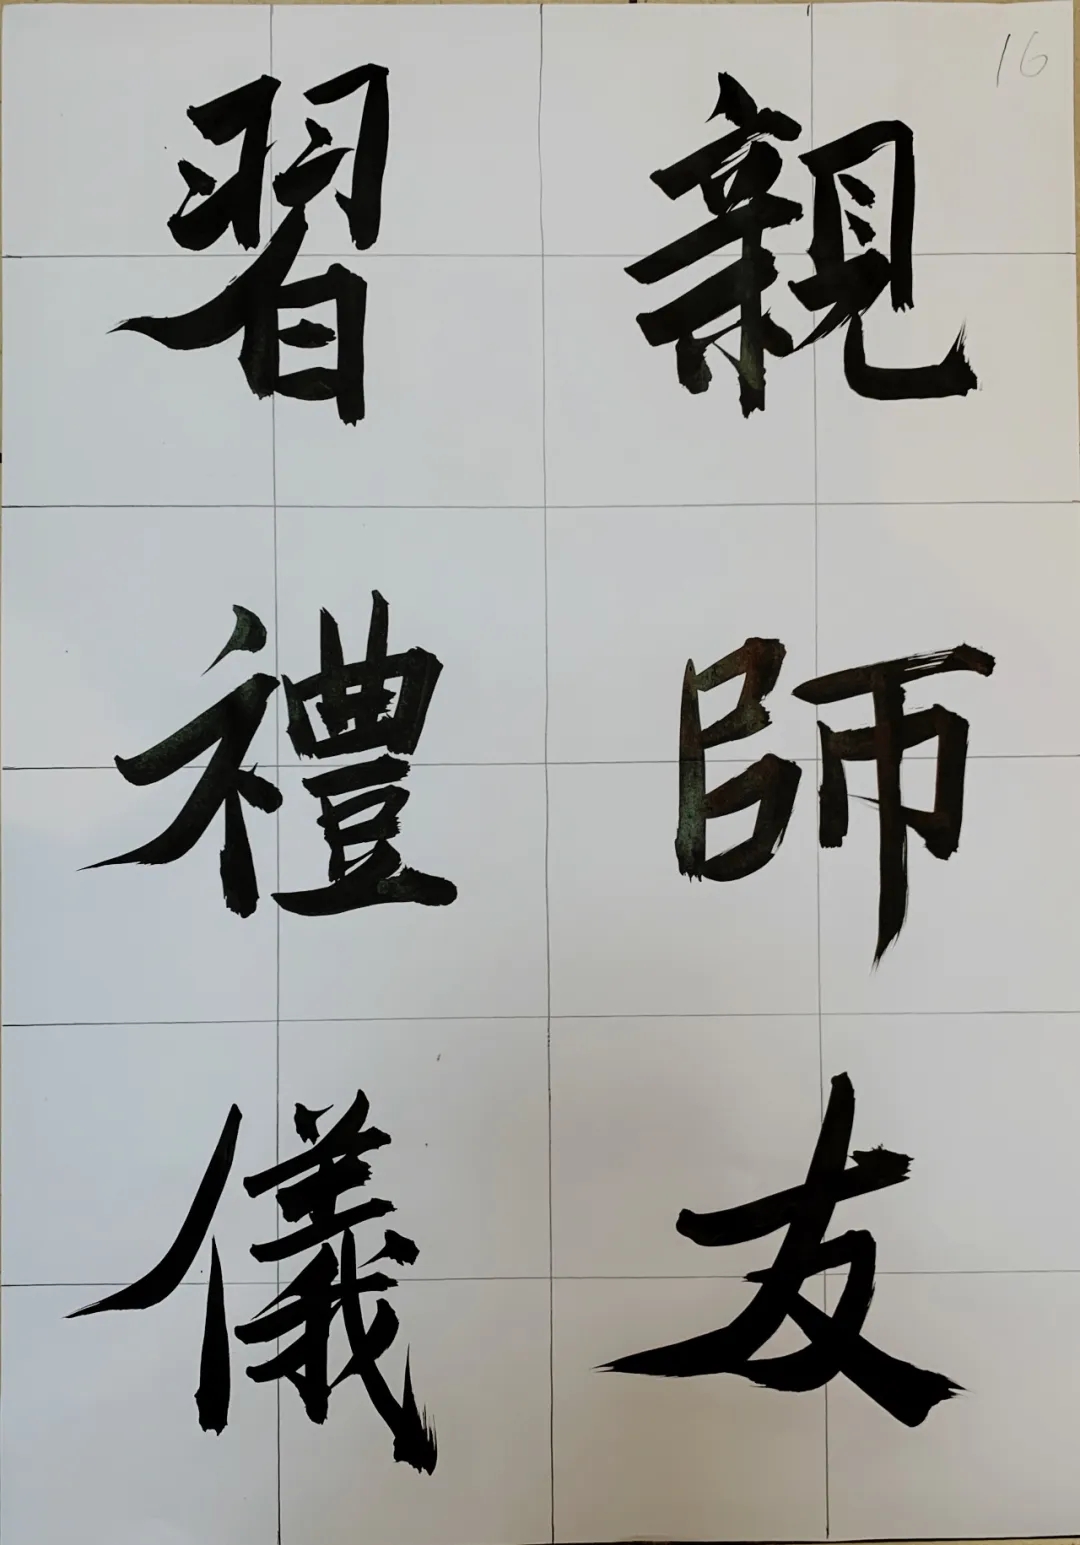 16
親師友
習禮儀